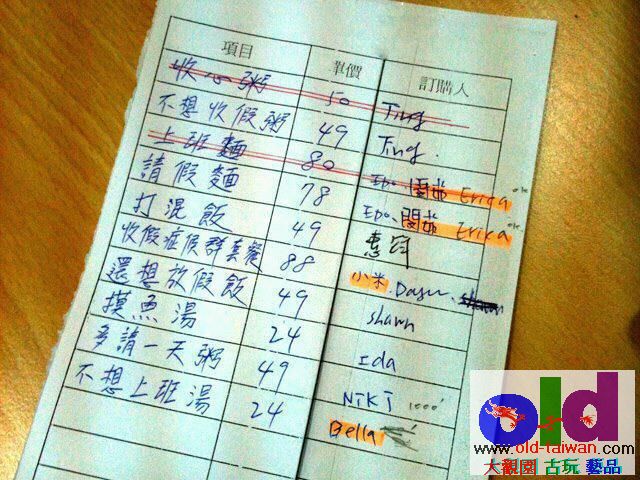 項目 單價 訂購人
收心粥 50 Ting
不想收假粥 49 Ting.
上班麵 80 EPO、閔茹 Erica ok
請假麵 78 EPO、閔茹 Erica ok
打混飯 49
收假症候群套餐 88 小米、Dasu、
還想放假飯 49 shawn
摸魚湯 24 Ida
多請一天粥 49 NIKI 1000'
不想上班湯 24 Bella
old
www.old-taiwan.com
大觀園 古玩 藝品